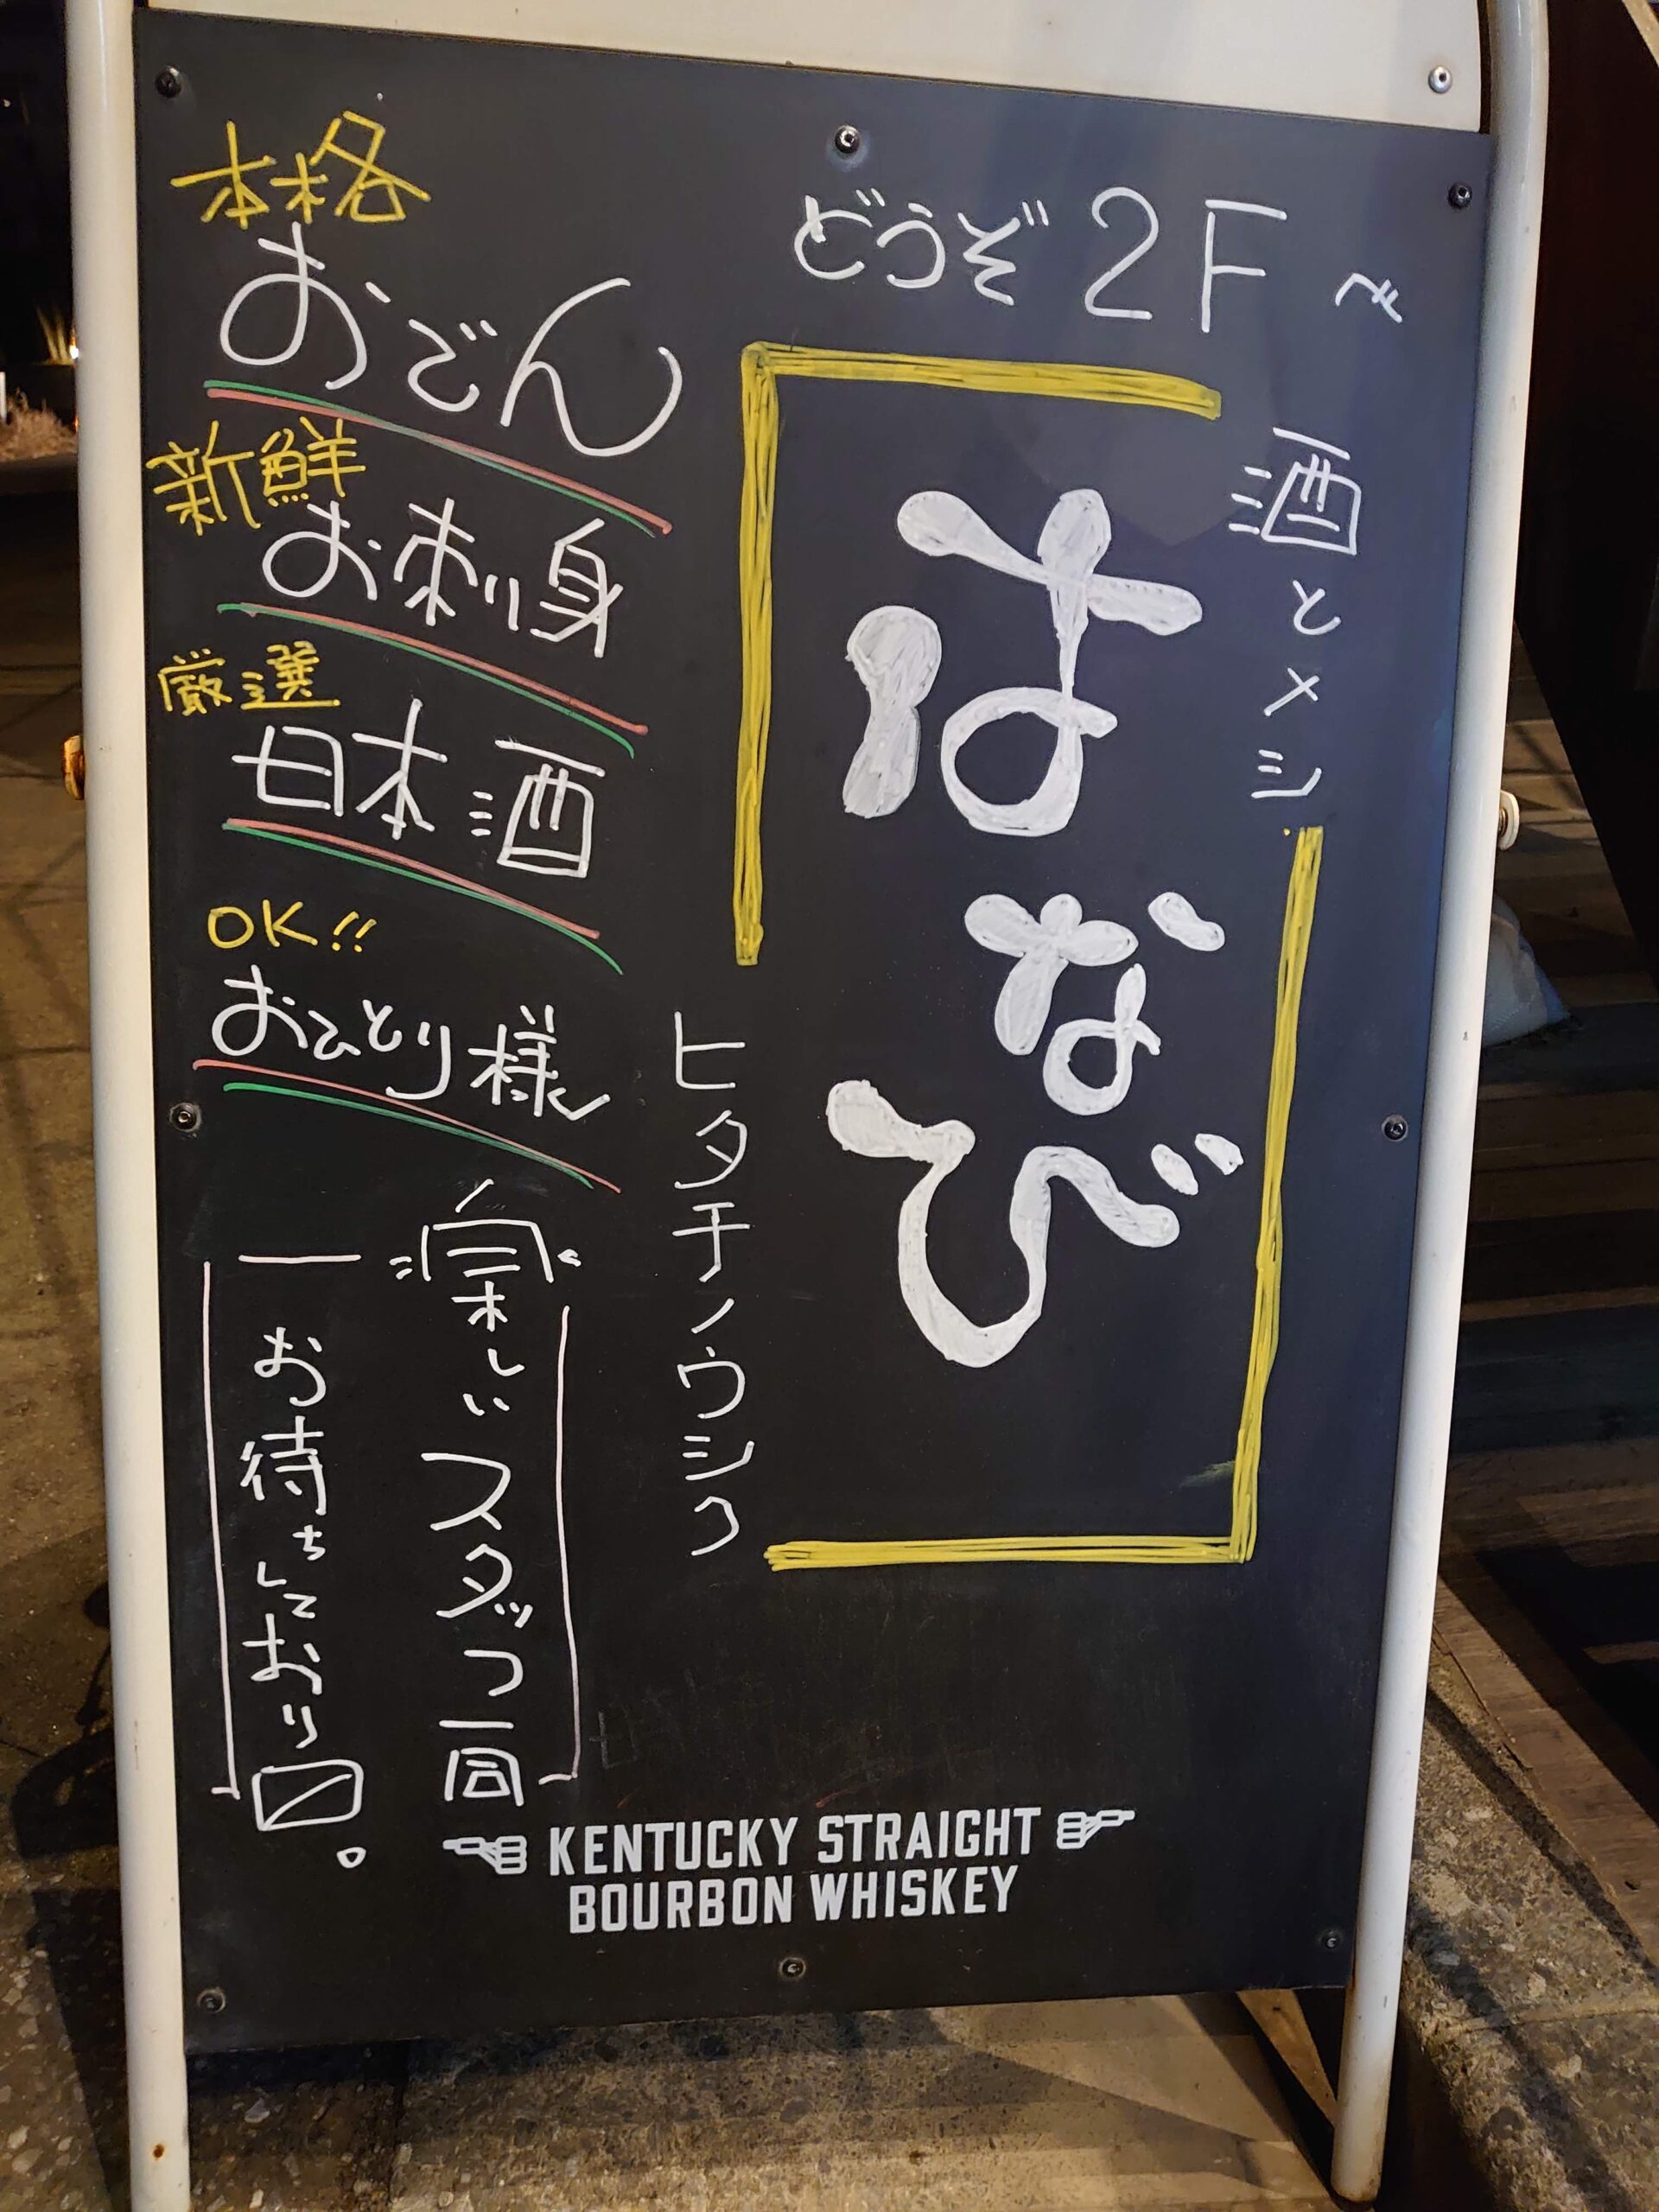 どうぞ2Fへ
酒とメシ
はなび
ヒタチノウシク
本格
おでん
新鮮
お刺身
厳選
日本酒
OK!!
おひとり様
楽しいスタッフ一同
お待ちしており〼。
KENTUCKY STRAIGHT
BOURBON WHISKEY